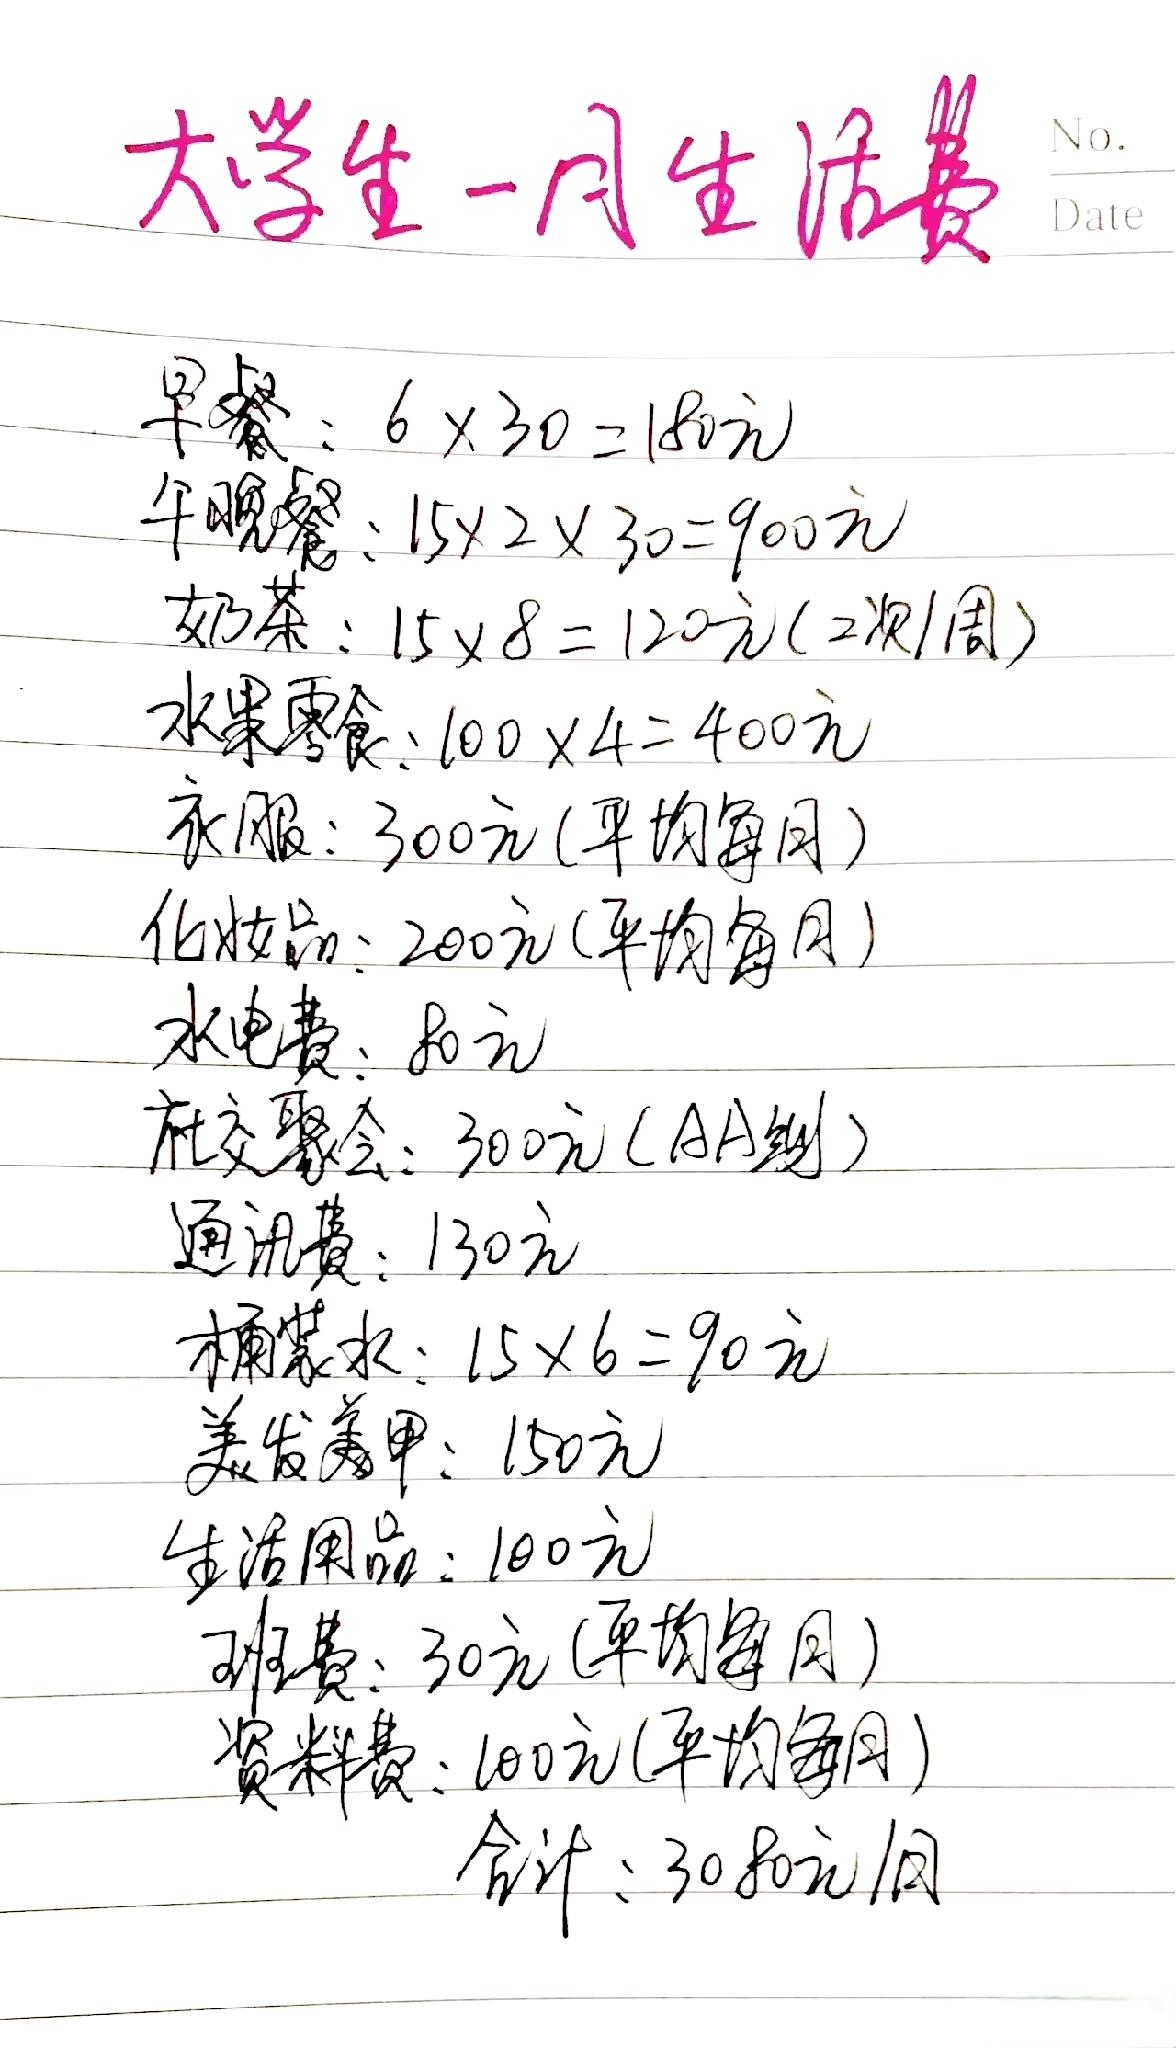 大学生一月生活费
No.
Date
早餐：6×30=180元
午晚餐：15×2×30=900元
奶茶：15×8=120元（2次/周）
水果零食：100×4=400元
衣服：300元（平均每月）
化妆品：200元（平均每月）
水电费：80元
社交聚会：300元（AA制）
通讯费：130元
桶装水：15×6=90元
美发美甲：150元
生活用品：100元
班费：30元（平均每月）
资料费：100元（平均每月）
合计：3080元/月